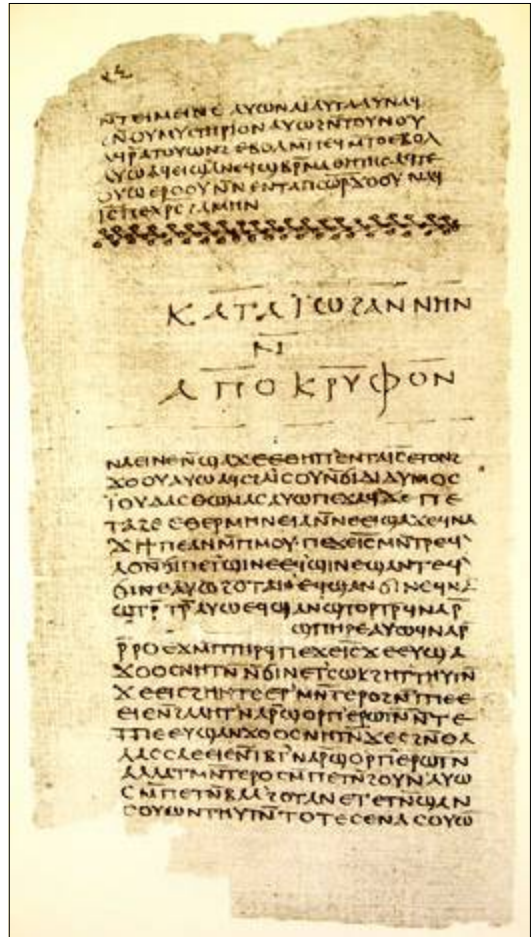 ⲗ̅ⲃ̅
ⲛ̄ⲧⲉⲓⲙⲉⲓⲛⲉ ⲁⲩⲱ ⲛⲁⲓ ⲁⲩⲧⲁⲁⲩ ⲛⲁϥ
ϩⲛ̄ⲟⲩⲙⲩⲥⲧⲏⲣⲓⲟⲛ ⲁⲩⲱ ϩⲛ̄ⲧⲟⲩⲛⲟⲩ
ⲁϥⲣ̄ⲁⲧⲟⲩⲱⲛϩ ⲉⲃⲟⲗ ⲙ̄ⲡⲉϥⲙ̄ⲧⲟ ⲉⲃⲟⲗ
ⲁⲩⲱ ⲁϥⲉⲓ ϣⲁⲛⲉϥϣⲃⲣ̄ⲙⲁⲑⲏⲧⲏⲥ ⲁϥⲧⲉ
ⲟⲩⲱ ⲉⲣⲟⲟⲩ ⲛ̄ⲛⲉⲛⲧⲁⲡⲥⲱ̅ⲣ̅ ϫⲟⲟⲩ ⲛⲁϥ
ⲓ̅ⲥ̅ ⲡⲉⲭ̅ⲣ̅ⲥ̅ ϩⲁⲙⲏⲛ
ⲕⲁⲧⲁ ⲓ̈ⲱϩⲁⲛⲛⲏⲛ
ⲛ̄
ⲁⲡⲟⲕⲣⲩⲫⲟⲛ
ⲛⲁⲉⲓⲛⲉ ⲛ̄ϣⲁϫⲉ ⲉⲑⲏⲡ ⲉⲛⲧⲁⲓ̅ⲥ̅ ⲉⲧⲟⲛϩ
ϫⲟⲟⲩ ⲁⲩⲱ ⲁϥⲥϩⲁⲓ̈ⲥⲟⲩ ⲛ̄ϭⲓ ⲇⲓⲇⲩⲙⲟⲥ
ⲓ̈ⲟⲩⲇⲁⲥ ⲑⲱⲙⲁⲥ ⲁⲩⲱ ⲡⲉϫⲁϥ ϫⲉ ⲡⲉ
ⲧⲁϩⲉ ⲉⲑⲉⲣⲙⲏⲛⲉⲓⲁ ⲛ̄ⲛⲉⲉⲓϣⲁϫⲉ ϥⲛⲁ
ϫⲓ ϯⲡⲉ ⲁⲛ ⲙ̄ⲡⲙⲟⲩ ⲡⲉϫⲉ ⲓ̅ⲥ̅ ⲙⲛ̄ⲧⲣⲉϥ
ⲗⲟ ⲛ̄ϭⲓ ⲡⲉⲧϣⲓⲛⲉ ⲉϥϣⲓⲛⲉ ϣⲁⲛⲧⲉϥ
ϭⲓⲛⲉ ⲁⲩⲱ ϩⲟⲧⲁⲛ ⲉϥϣⲁⲛϭⲓⲛⲉ ϥⲛⲁ
ϣⲧⲣ̄ⲧⲣ̄ ⲁⲩⲱ ⲉϥϣⲁⲛϣⲧⲟⲣⲧⲣ̄ ϥⲛⲁⲣ̄
ϣⲡⲏⲣⲉ ⲁⲩⲱ ϥⲛⲁⲣ̄
ⲣ̄ⲣⲟ ⲉϫⲙ̄ ⲡⲧⲏⲣϥ ⲡⲉϫⲉ ⲓ̅ⲥ̅ ϫⲉ ⲉⲩϣⲁ
ϫⲟⲟⲥ ⲛⲏⲧⲛ̄ ⲛ̄ϭⲓ ⲛⲉⲧⲥⲱⲕ ϩⲏⲧ ⲑⲏⲩⲧⲛ̄
ϫⲉ ⲉⲓⲥϩⲏⲏⲧⲉ ⲉⲧⲙⲛ̄ⲧⲉⲣⲟ ϩⲛ̄ ⲧⲡⲉ ⲉ
ⲉⲓⲉ ⲛ̄ϩⲁⲗⲏⲧ ⲛⲁⲣ̄ϣⲟⲣⲡ ⲉⲣⲱⲧⲛ̄ ⲛ̄ⲧⲉ
ⲧⲡⲉ ⲉⲩϣⲁⲛϫⲟⲟⲥ ⲛⲏⲧⲛ̄ ϫⲉ ⲥϩⲛ̄ ⲑⲁ
ⲗⲁⲥⲥⲁ ⲉⲉⲓⲉ ⲛ̄ⲧⲃⲧ ⲛⲁⲣ̄ϣⲟⲣⲡ ⲉⲣⲱⲧⲛ̄
ⲁⲗⲗⲁ ⲧⲙⲛ̄ⲧⲉⲣⲟ ⲥⲙ̄ⲡⲉⲧⲛ̄ϩⲟⲩⲛ ⲁⲩⲱ
ⲥⲙ̄ⲡⲉⲧⲛ̄ⲃⲁⲗ ϩⲟⲧⲁⲛ ⲉⲧⲉⲧⲛ̄ϣⲁⲛ
ⲥⲟⲩⲱⲛ ⲑⲏⲩⲧⲛ̄ ⲧⲟⲧⲉ ⲥⲉⲛⲁⲥⲟⲩⲱ